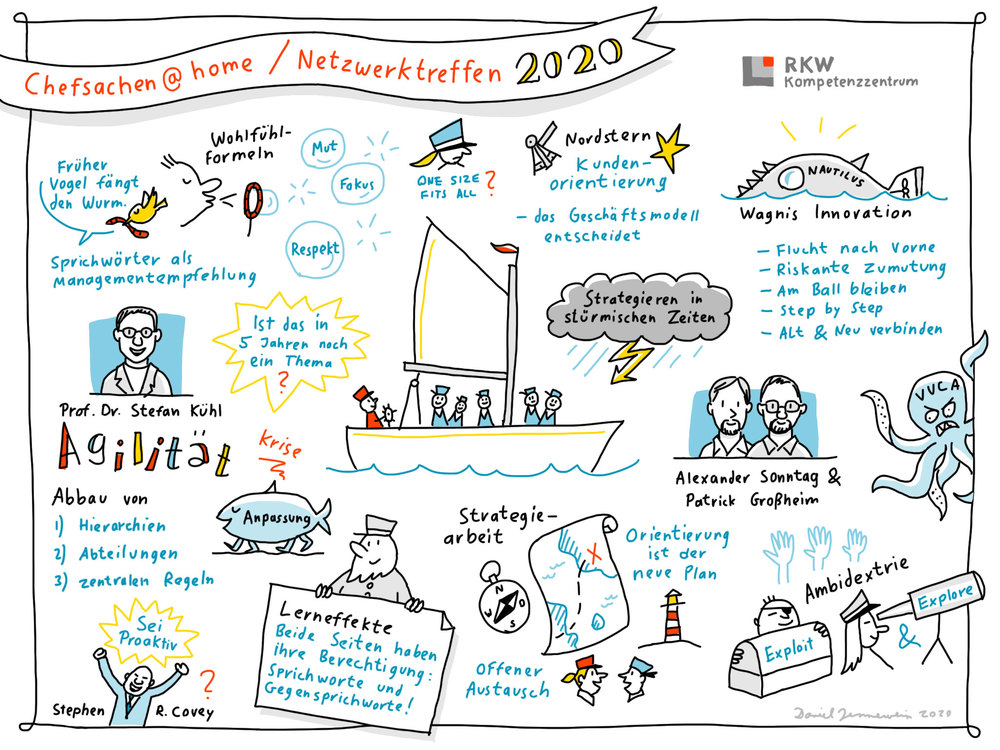 Chefsachen@home / Netzwerktreffen 2020
RKW
Kompetenzzentrum
Früher
Vogel fängt
den Wurm.
Sprichwörter als
Managementempfehlung
Wohlfühl-
Formeln
Mut
Fokus
Respekt
ONE SIZE
FITS ALL ?
Nordstern
Kunden-
orientierung
– das Geschäftsmodell
entscheidet
NAUTILUS
Wagnis Innovation
– Flucht nach vorne
– Riskante Zumutung
– Am Ball bleiben
– Step by Step
– Alt & Neu verbinden
Prof. Dr. Stefan Kühl
Ist das in
5 Jahren noch
ein Thema
?
Strategieren in
stürmischen Zeiten
Alexander Sonntag &
Patrick Großheim
VUCA
Agilität
Abbau von
1) Hierarchien
2) Abteilungen
3) zentralen Regeln
Krise
Anpassung
Sei
Proaktiv
?
Stephen R. Covey
Lerneffekte
Beide Seiten haben
ihre Berechtigung:
Sprichworte und
Gegensprichworte!
Strategie-
arbeit
N
O
S
W
X
Orientierung
ist der
neue Plan
Offener
Austausch
Ambidextrie
Exploit
&
Explore
Daniel Jennewein 2020